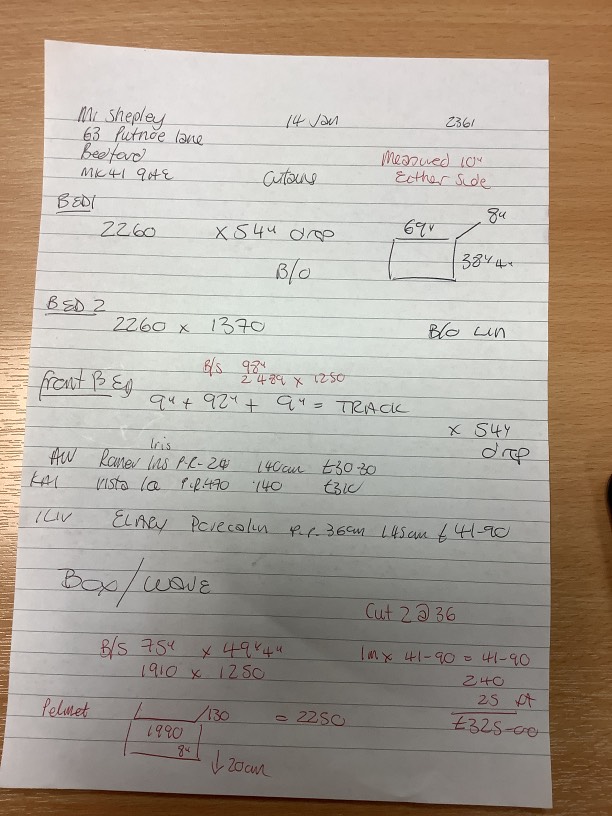 Mr Shepley 14 Jan 2361
63 Putnoe lane
Bedford Measured 10"
MK41 9AE Curtains Either Side
BED1
2260 x 54" drop 69" 8"
B/O 38" 4"
BED 2
2260 x 1370 B/O Lin
B/S 98"
2489 x 1250
front BED
9" + 92" + 9" = TRACK
x 54"
drop
Iris
AW P.R-24 140cm £30-30
KAI vista P.R.490 140
ILIV P.R. 36cm 145cm £41-90
Box/WAVE
Cut 2 @ 36
B/S 75" x 49" 4" 1m x 41-90 = 41-90
1910 x 1250 240
25
Pelmet 130 = 2250 £325-00
1990
8"
↓20cm